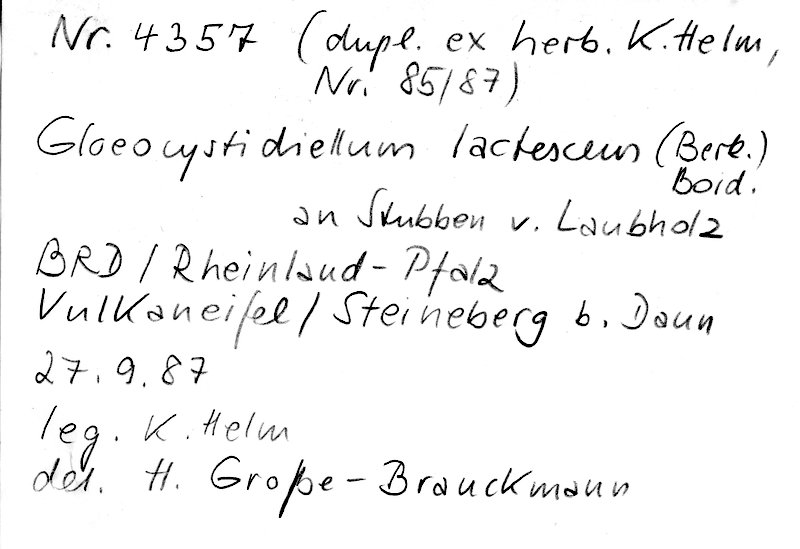 Nr. 4357 (dupl. ex herb. K. Helm,
Nr. 85/87)
Gloeocystidiellum lactescens (Berk.)
Boid.
an Stubben v. Laubholz
BRD / Rheinland-Pfalz
Vulkaneifel / Steineberg b. Daun
27.9.87
leg. K. Helm
det. H. Große-Brauckmann